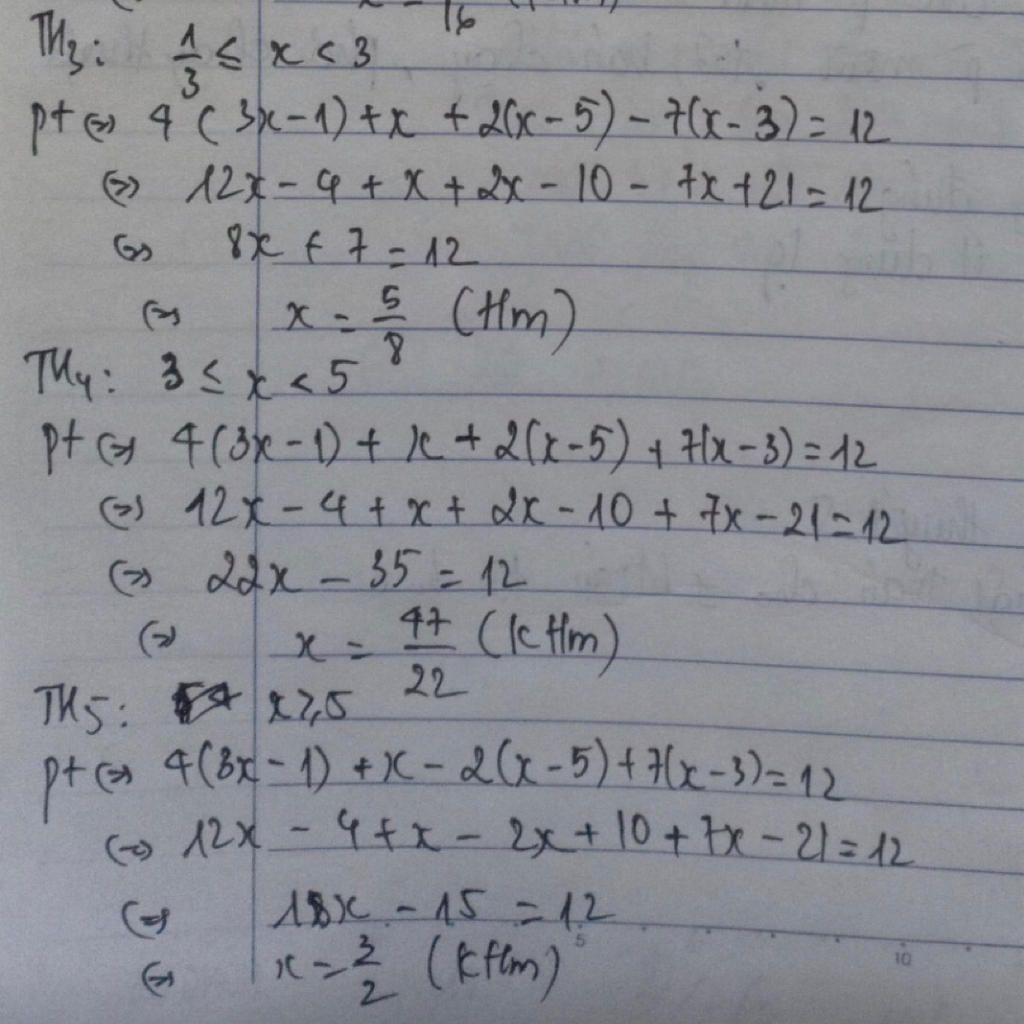 16
TH3: 1/3 ≤ x < 3
pt ⇔ 4(3x-1) + x + 2(x-5) - 7(x-3) = 12
⇔ 12x - 4 + x + 2x - 10 - 7x + 21 = 12
⇔ 8x + 7 = 12
⇔ x = 5/8 (thm)
TH4: 3 ≤ x < 5
pt ⇔ 4(3x-1) + x + 2(x-5) + 7(x-3) = 12
⇔ 12x - 4 + x + 2x - 10 + 7x - 21 = 12
⇔ 22x - 35 = 12
⇔ x = 47/22 (kthm)
TH5: x ≥ 5
pt ⇔ 4(3x-1) + x - 2(x-5) + 7(x-3) = 12
⇔ 12x - 4 + x - 2x + 10 + 7x - 21 = 12
⇔ 18x - 15 = 12
⇔ x = 3/2 (kthm)
5 10